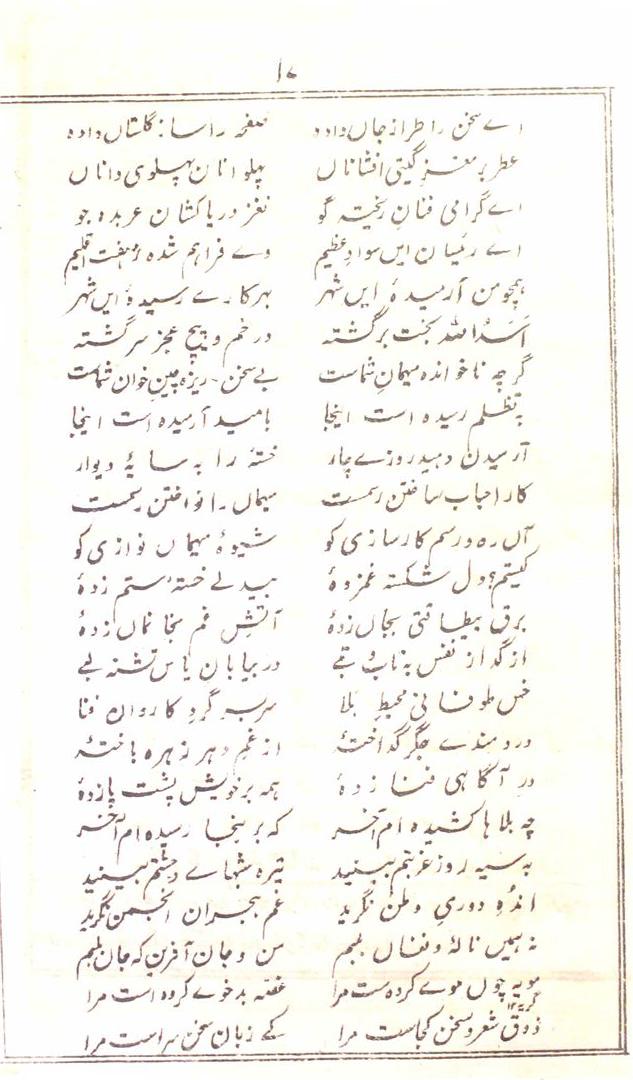 ۱۷
اے سخن را طراز جاں دادہ صفحہ را ساز گلستاں دادہ
عطر بر مغز گیتی افشاناں پہلوانان پہلوی داناں
اے گرامی فنان ریختہ گو نغز دریاکشان عربدہ جو
اے رئیسان ایں سواد عظیم وے فراہم شدہ ز ہفت اقلیم
ہمچو من آرمیدۂ ایں شہر بہر کارے رسیدۂ ایں شہر
اسد اللہ بخت برگشتہ در خم و پیچ عجز سرگشتہ
گرچہ ناخواندہ میہمان شماست بے سخن ریزہ چین خوان شماست
بہ تظلم رسیدہ است اینجا بامید آرمیدہ است اینجا
آرمیدن دہید روزے چار خستۂ را بہ سایۂ دیوار
کار احباب ساختن رسمست میہماں را نواختن رسمست
آں رہ و رسم کارسازی کو شیوۂ میہماں نوازی کو
کیستم؟ دل شکستہ غمزدۂ بیدلے خستۂ ستم زدۂ
برق بیطاقتی بجاں زدۂ آتش غم بخانماں زدۂ
از گداز نفس بہ تاب و تبے در بیابان یاس تشنہ لبے
خس طوفانی محیط بلا سر بسر گرد کاروان فنا
دردمندے جگر گداختۂ از غم دہر زہرہ باختۂ
در آگاہی فنا زدۂ ہمہ بر خویش پشت پا زدۂ
چہ بلاہا کشیدہ ام آخر کہ بر اینجا رسیدہ ام آخر
بہ سیہ روز غربتم بینید تیرہ شبہاے وحشتم بینید
اندہ دوری وطن نگرید غم ہجران انجمن نگرید
نہ ہمیں نالہ و فغاں بلبم من و جان آفرین کہ جاں بلبم
مویہ چوں موے کردہ ست مرا غصہ بدخوے کردہ است مرا
گریہ ۱۲
ذوق شعر و سخن کجاست مرا کے زبان سخن سراست مرا